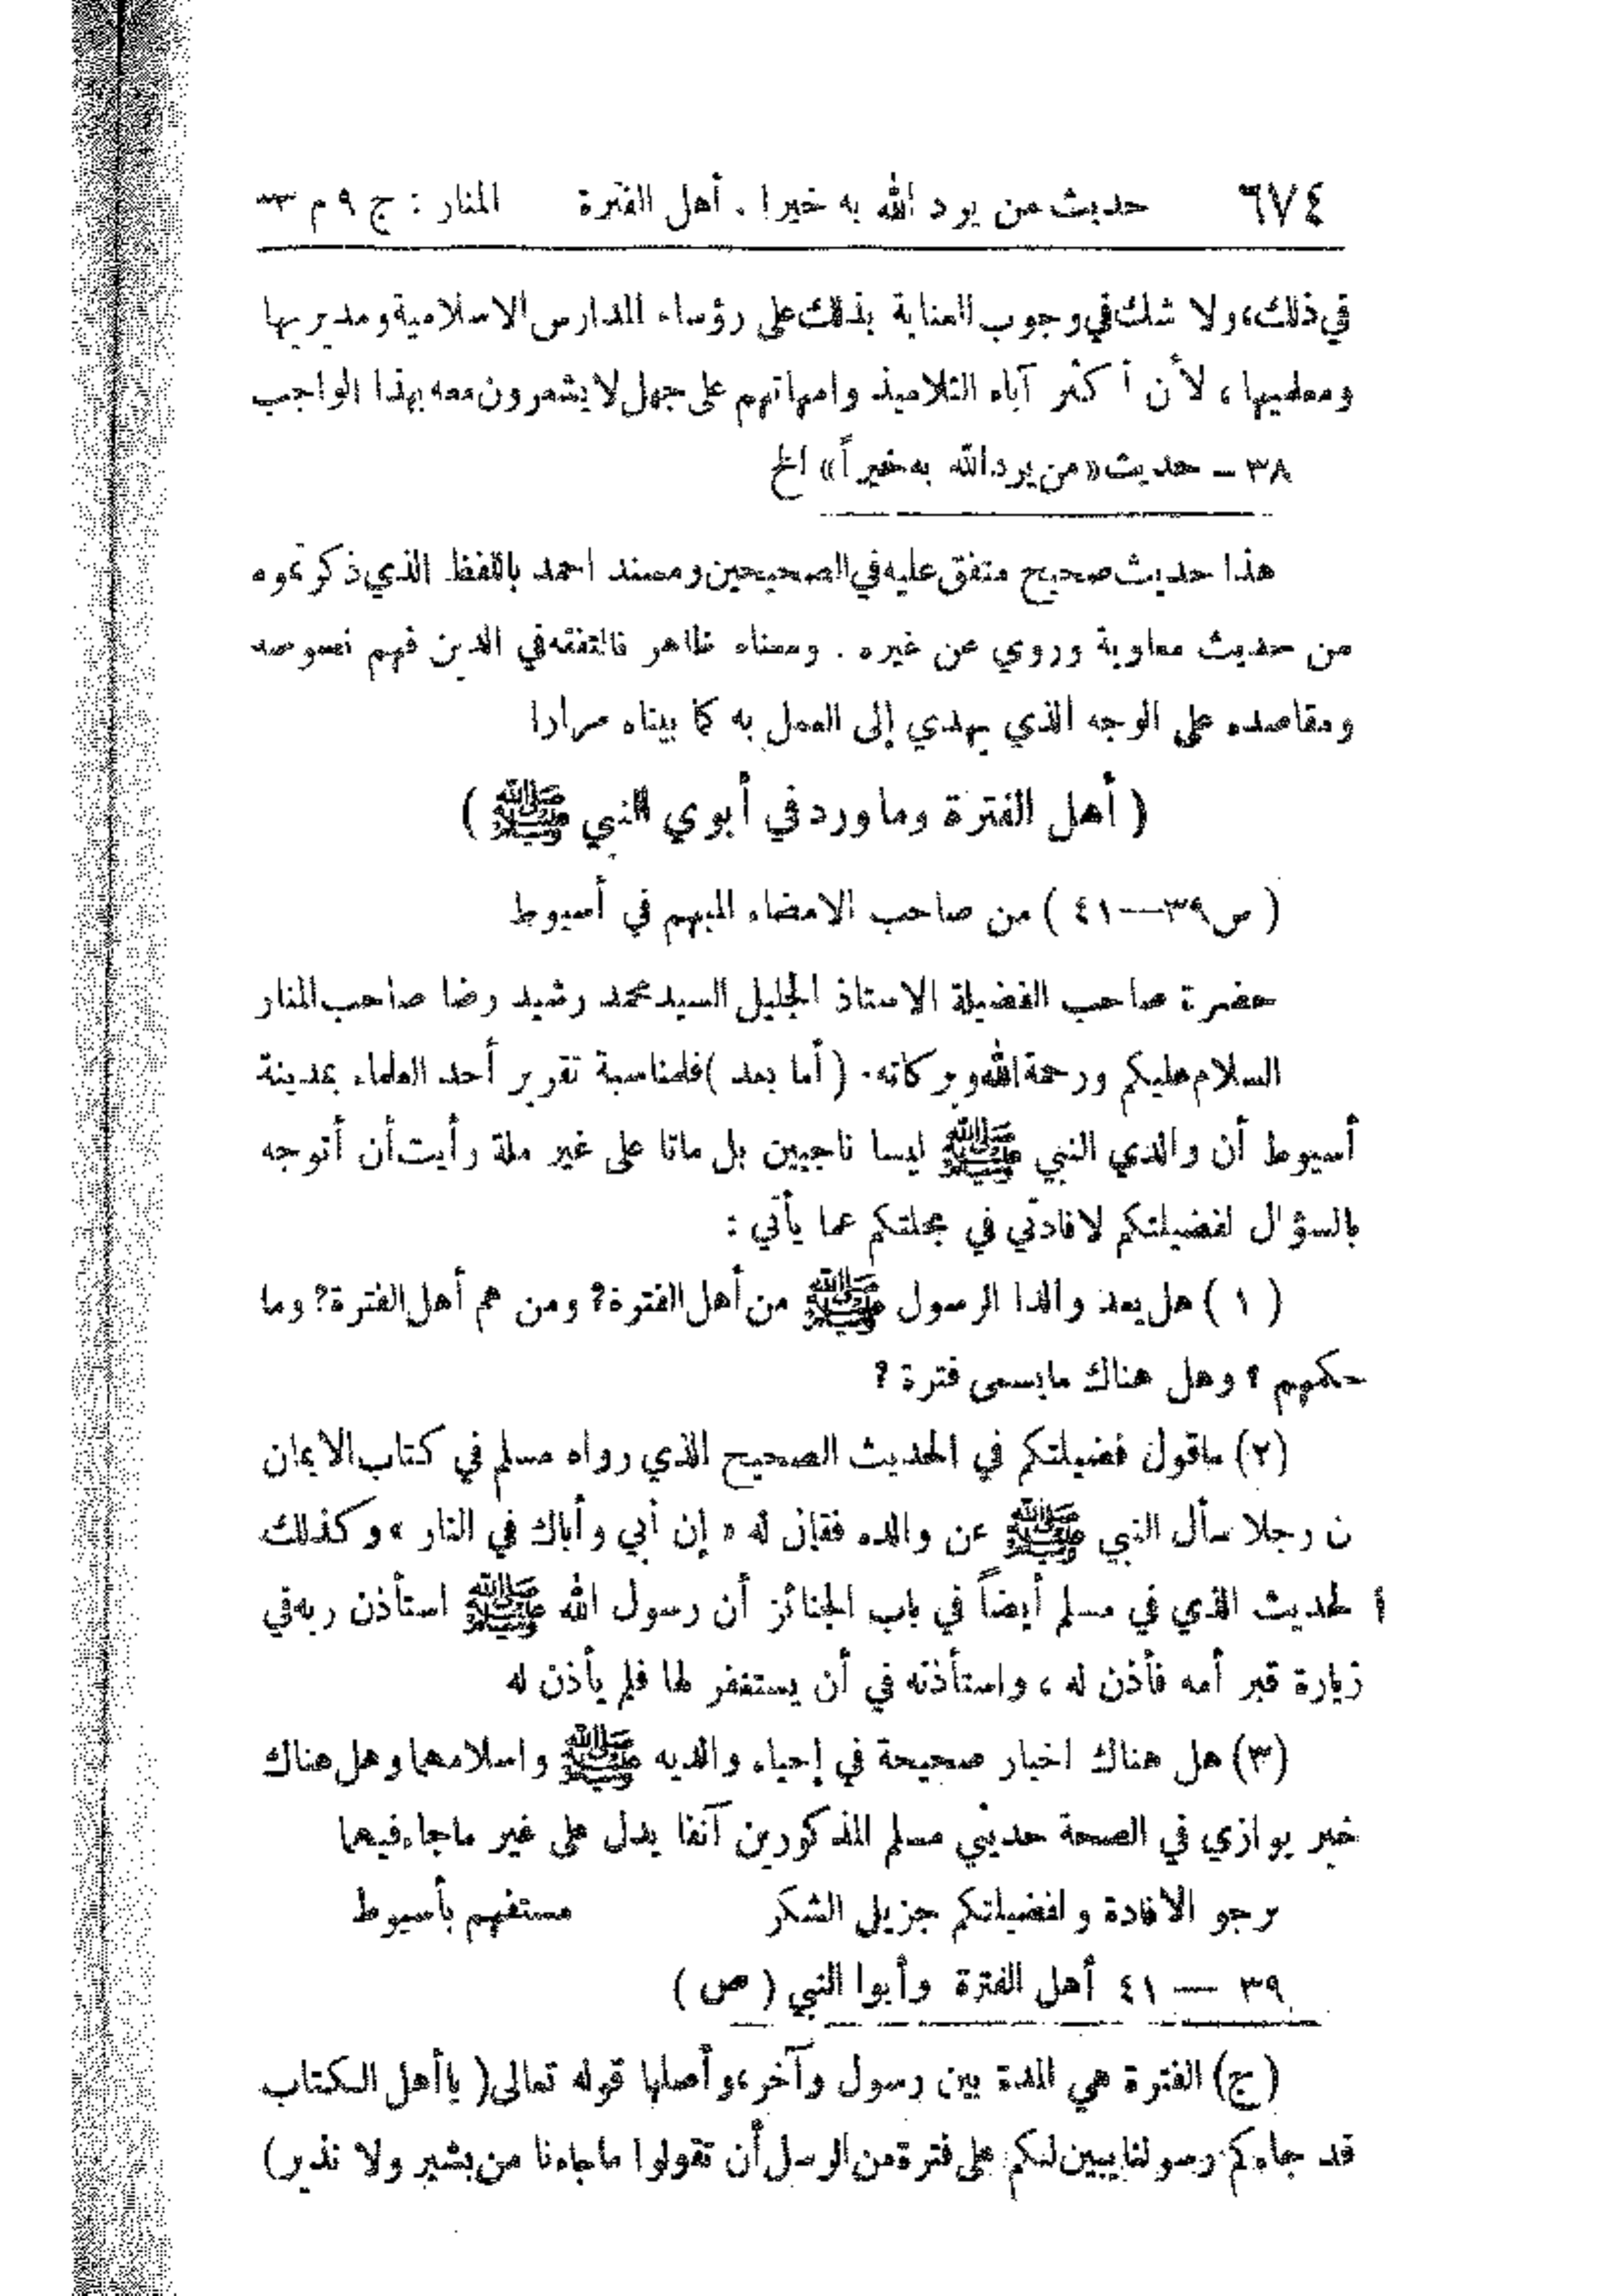 ٦٧٤ حديث من يرد الله به خيرا . أهل الفترة المنار : ج ٩ م ٣٣
في ذلك، ولا شك في وجوب العناية بذلك على رؤساء المدارس الاسلامية ومديريها
ومعلميها ، لأن أكثر آباء التلاميذ وامهاتهم على جهل لا يشعرون معه بهذا الواجب
٣٨ – حديث «من يرد الله به خيراً» الخ
هذا حديث صحيح متفق عليه في الصحيحين ومسند احمد باللفظ الذي ذكرتموه
من حديث معاوية وروي عن غيره . ومعناه ظاهر فالتفقه في الدين فهم نصوصه
ومقاصده على الوجه الذي يهدي إلى العمل به كما بيناه مرارا
( أهل الفترة وما ورد في أبوي النبي ﷺ )
( س٣٩—٤١ ) من صاحب الامضاء المبهم في أسيوط
حضرة صاحب الفضيلة الاستاذ الجليل السيد محمد رشيد رضا صاحب المنار
السلام عليكم ورحمة الله وبركاته. ( أما بعد ) فلمناسبة تقرير أحد العلماء بمدينة
أسيوط أن والدي النبي ﷺ ليسا ناجيين بل ماتا على غير ملة رأيت أن أتوجه
بالسؤال لفضيلتكم لافادتي في مجلتكم عما يأتي :
( ١ ) هل يعد والدا الرسول ﷺ من أهل الفترة؟ ومن هم أهل الفترة؟ وما
حكمهم ؟ وهل هناك مايسمى فترة ؟
(٢) ماقول فضيلتكم في الحديث الصحيح الذي رواه مسلم في كتاب الايمان
ن رجلا سأل النبي ﷺ عن والده فقال له « إن أبي وأباك في النار » وكذلك
ا لحديث الذي في مسلم أيضاً في باب الجنائز أن رسول الله ﷺ استأذن ربه في
زيارة قبر أمه فأذن له ، واستأذنه في أن يستغفر لها فلم يأذن له
(٣) هل هناك اخبار صحيحة في إحياء والديه ﷺ واسلامهما وهل هناك
خبر يوازي في الصحة حديثي مسلم المذكورين آنفا يدل على غير ماجاء فيهما
نرجو الافادة ولفضيلتكم جزيل الشكر مستفهم بأسيوط
٣٩ — ٤١ أهل الفترة وأبوا النبي ( ص )
(ج) الفترة هي المدة بين رسول وآخر، وأصلها قوله تعالى ( ياأهل الكتاب
قد جاءكم رسولنا يبين لكم على فترة من الرسل أن تقولوا ماجاءنا من بشير ولا نذير)